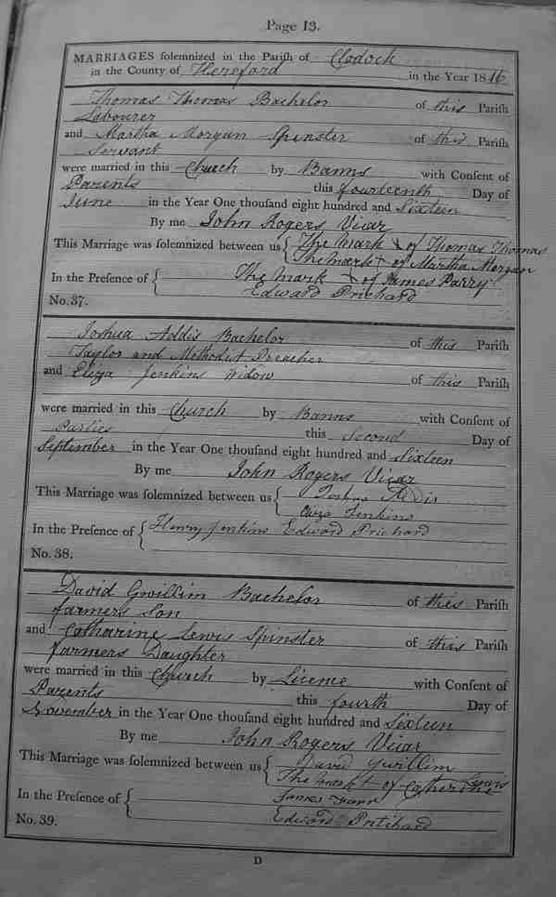 Page 13.
MARRIAGES solemnized in the Parish of Clodock
in the County of Hereford in the Year 1816
Thomas Thomas Bachelor of this Parish
Labourer
and Martha Morgan Spinster of this Parish
Servant
were married in this Church by Banns with Consent of
Parents this fourteenth Day of
June in the Year One thousand eight hundred and Sixteen
By me John Rogers Vicar
This Marriage was solemnized between us { The Mark X of Thomas Thomas
The Mark + of Martha Morgan
In the Presence of { The Mark X of James Parry
Edward Prichard
No. 37.
Joshua Addis Bachelor of this Parish
Taylor and Methodist Preacher
and Eliza Jenkins Widow of this Parish
were married in this Church by Banns with Consent of
Parties this Second Day of
September in the Year One thousand eight hundred and Sixteen
By me John Rogers Vicar
This Marriage was solemnized between us { Joshua Addis
Eliza Jenkins
In the Presence of { Henry Jenkins Edward Prichard
No. 38.
David Gwillim Bachelor of this Parish
farmers Son
and Catharine Lewis Spinster of this Parish
farmers Daughter
were married in this Church by License with Consent of
Parents this fourth Day of
November in the Year One thousand eight hundred and Sixteen
By me John Rogers Vicar
This Marriage was solemnized between us { David Gwillim
The Mark + of Catherine Lewis
In the Presence of { James
Edward Pritchard
No. 39.
D